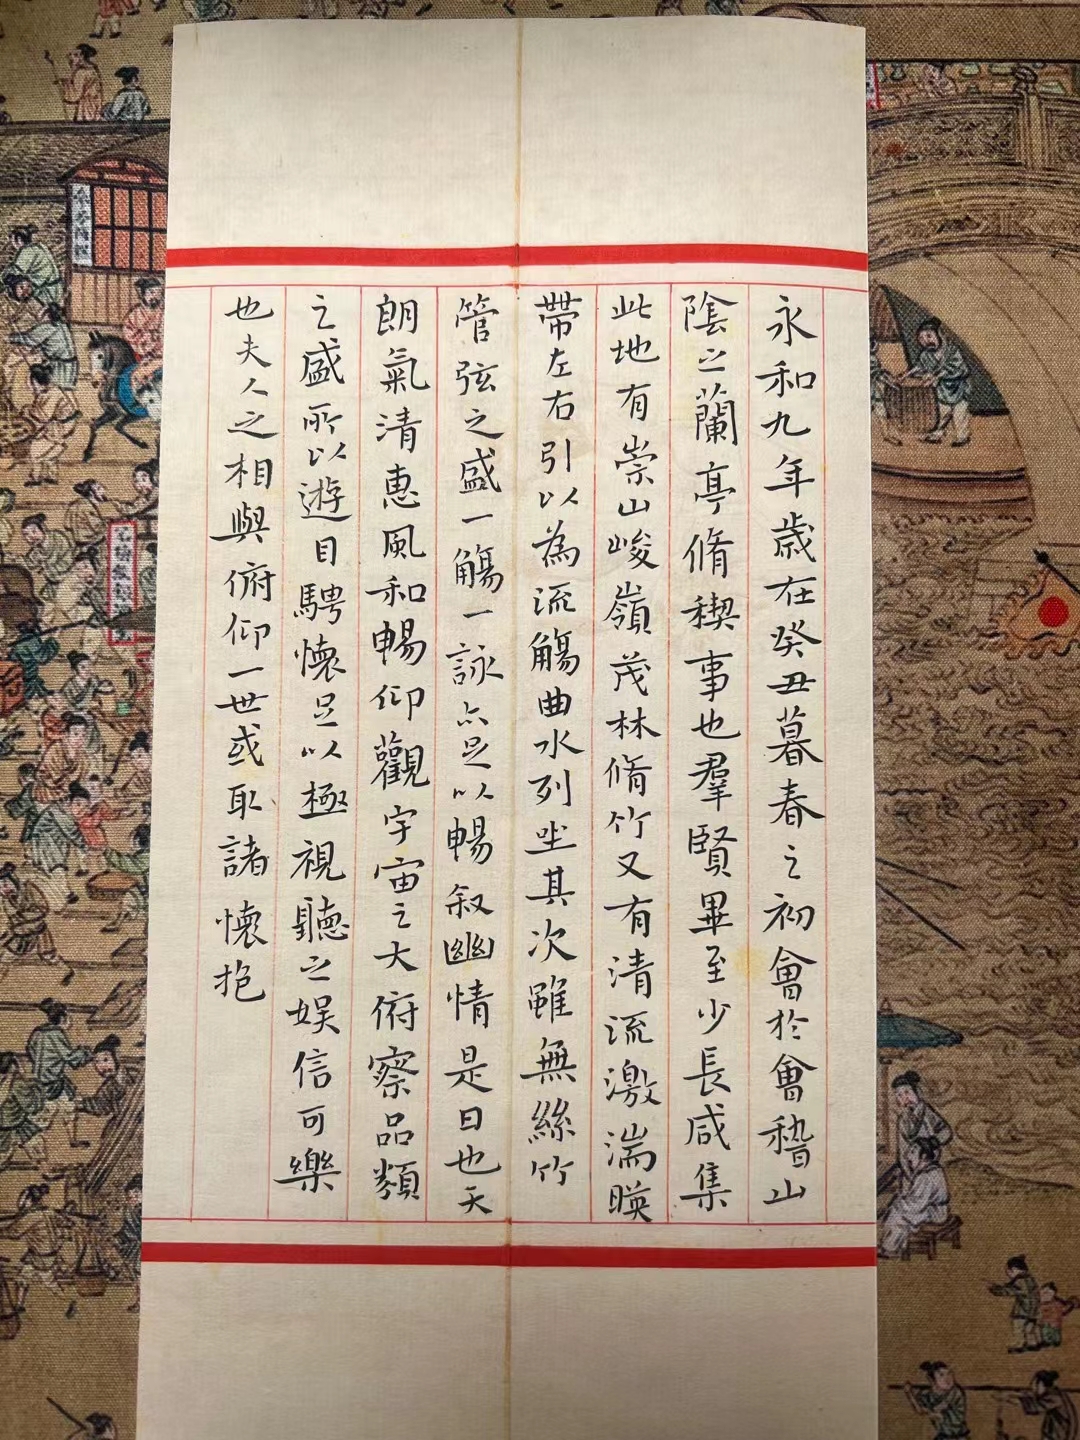 永和九年歲在癸丑暮春之初會於會稽山
陰之蘭亭脩稧事也羣賢畢至少長咸集
此地有崇山峻嶺茂林脩竹又有清流激湍暎
帶左右引以為流觴曲水列坐其次雖無絲竹
管弦之盛一觴一詠亦足以暢叙幽情是日也天
朗氣清惠風和暢仰觀宇宙之大俯察品類
之盛所以遊目騁懷足以極視聽之娱信可樂
也夫人之相與俯仰一世或取諸懷抱